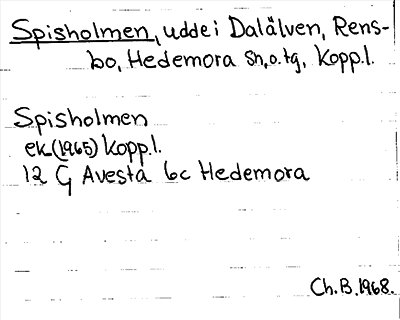 Spisholmen, udde i Dalälven, Rens-
bo, Hedemora sn, o. tg, Kopp.l.
Spisholmen
ek (1965) Kopp.l.
12 G Avesta 6c Hedemora
Ch.B.1968.